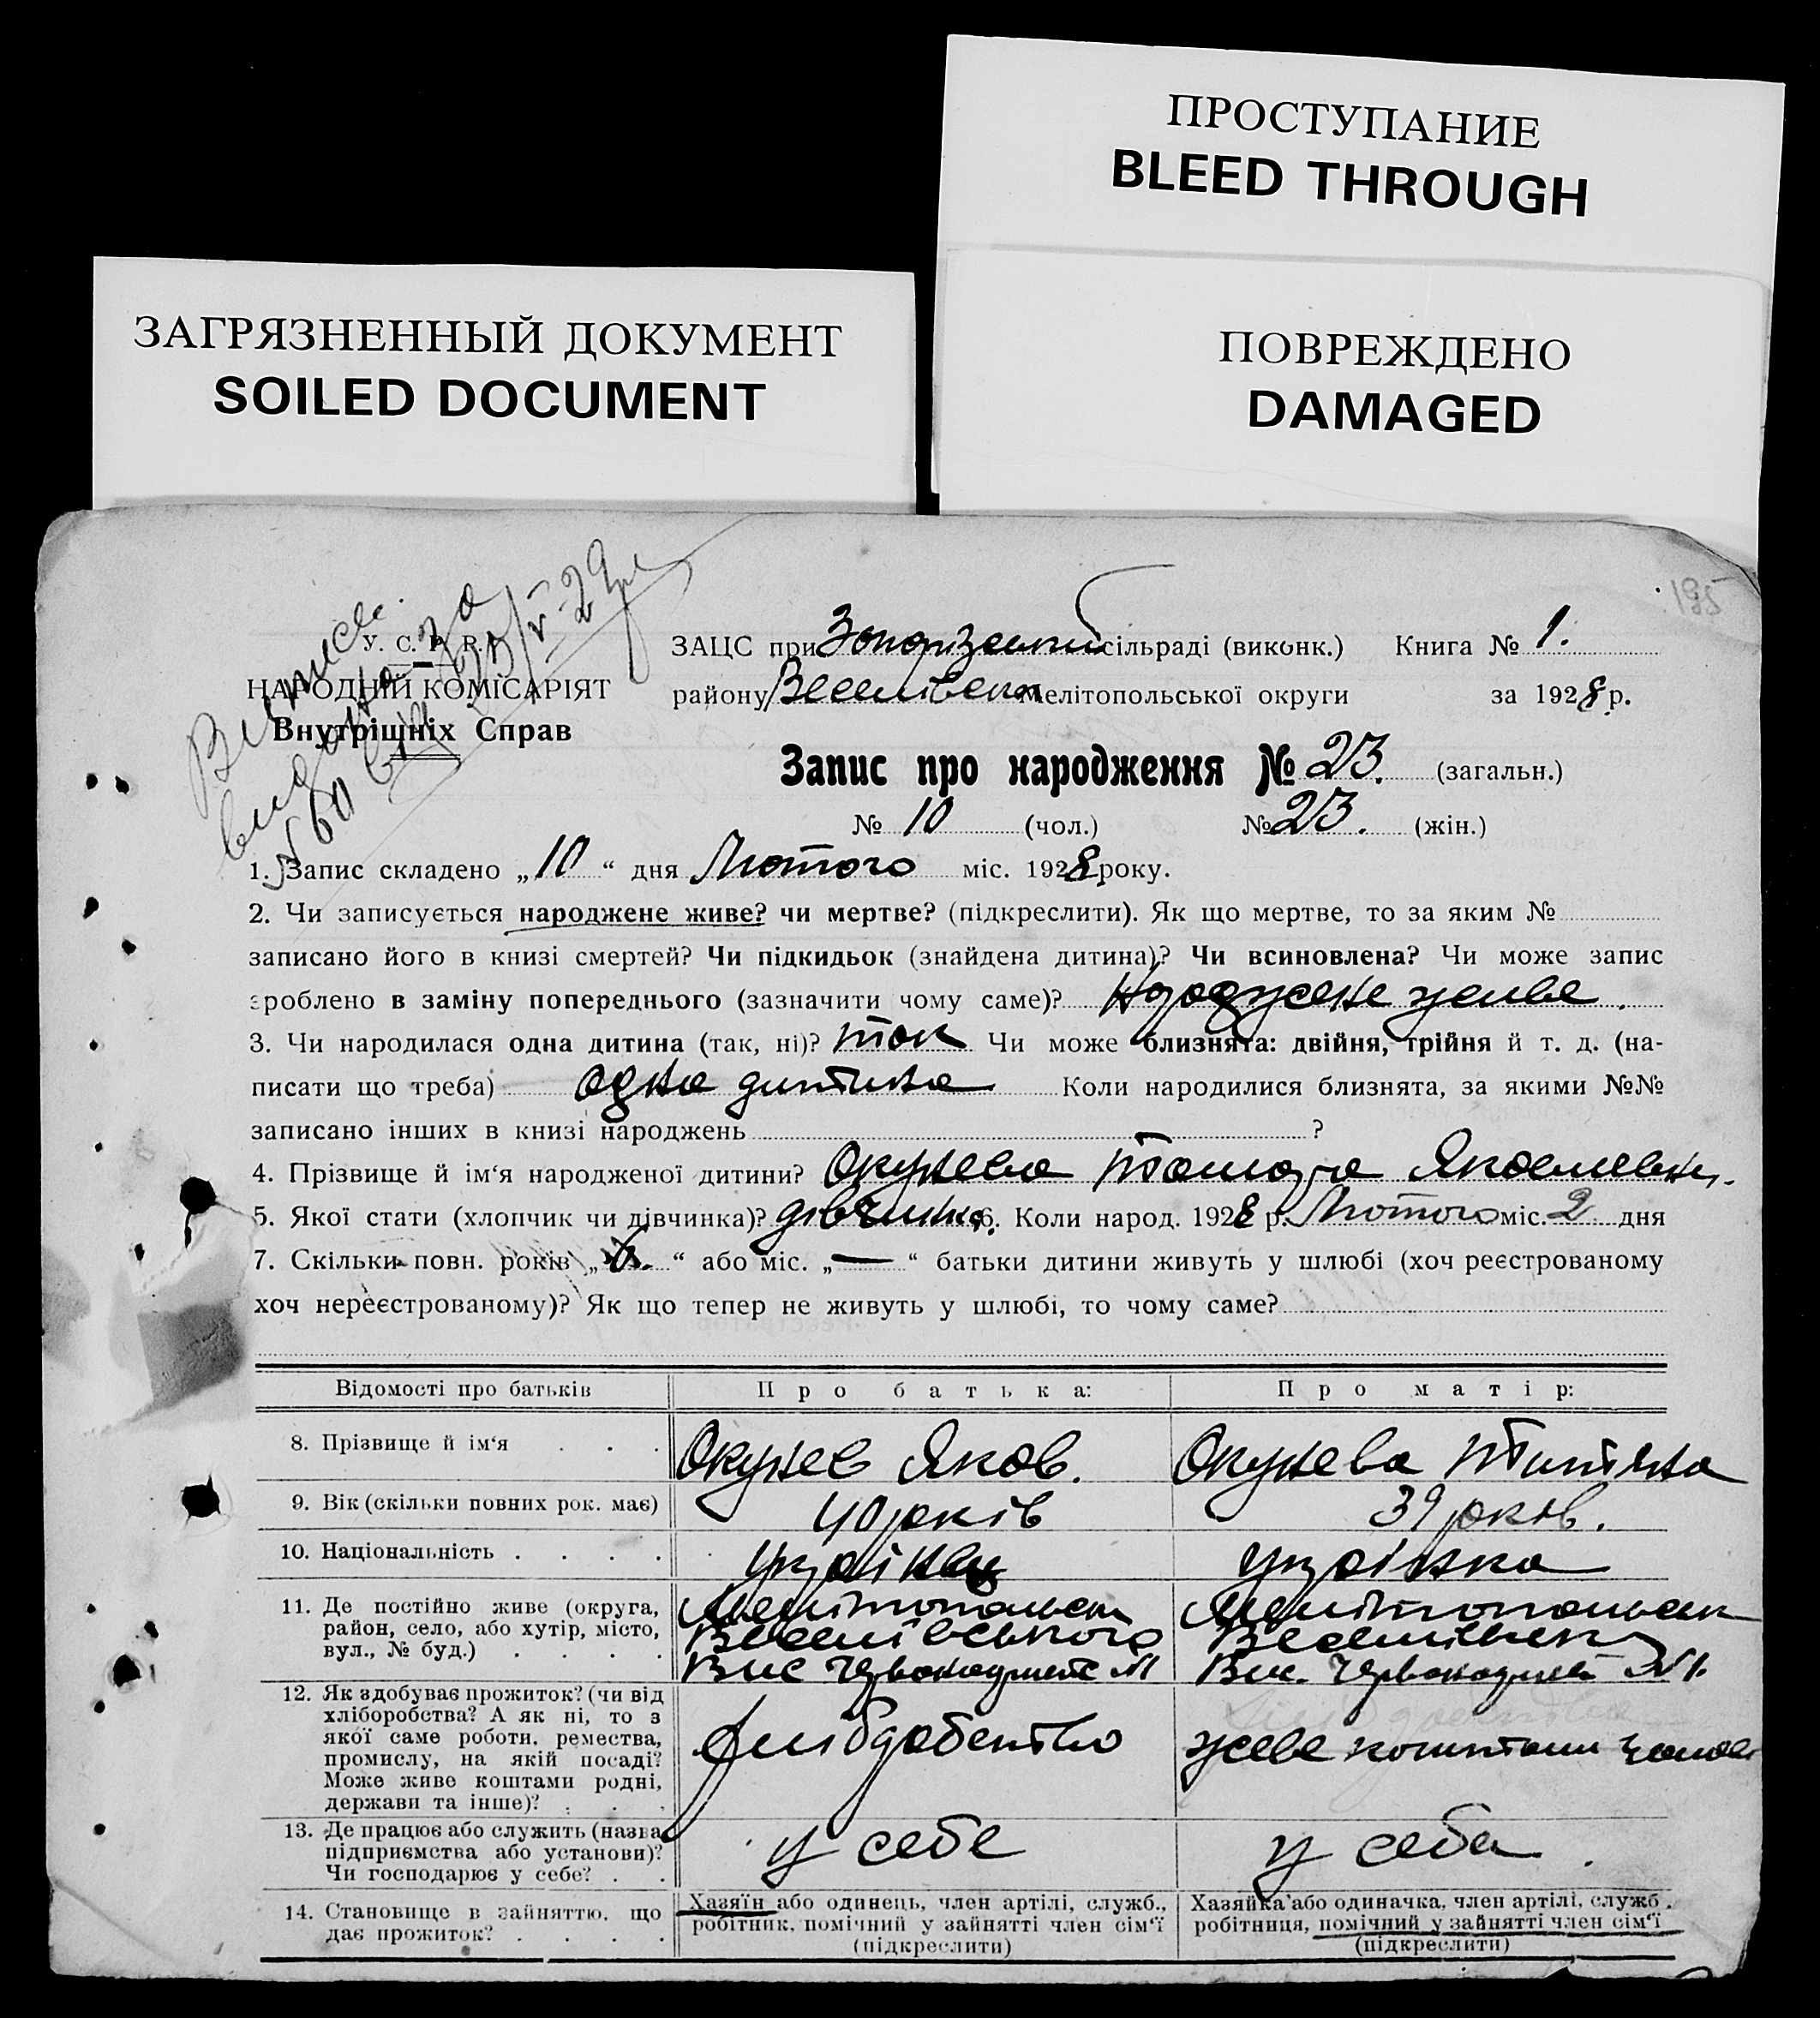 ПРОСТУПАНИЕ
BLEED THROUGH
ЗАГРЯЗНЕННЫЙ ДОКУМЕНТ
SOILED DOCUMENT
ПОВРЕЖДЕНО
DAMAGED
195
Виписа
видана
У. С. Р. Р.
НАРОДНІЙ КОМІСАРІЯТ
Внутрішніх Справ
ЗАЦС при сільраді (виконк.) Книга № 1.
району Веселівськ Мелітопольської округи за 1928 р.
Запис про народження № 23. (загальн.)
№ 10 (чол.) № 23. (жін.)
1. Запис складено „10“ дня Лютого міс. 1928 року.
2. Чи записується народжене живе? чи мертве? (підкреслити). Як що мертве, то за яким №
записано його в книзі смертей? Чи підкидьок (знайдена дитина)? Чи всиновлена? Чи може запис
зроблено в заміну попереднього (зазначити чому саме)? Народжене живе.
3. Чи народилася одна дитина (так, ні)? так Чи може близнята: двійня, трійня й т. д. (на-
писати що треба) одна дитина Коли народилися близнята, за якими №№
записано інших в книзі народжень ?
4. Прізвище й ім‘я народженої дитини? Окунева Тамара
5. Якої стати (хлопчик чи дівчинка)? дівчинка. 6. Коли народ. 1928 р. Лютого міс. 2 дня
7. Скільки повн. років „ “ або міс. „—“ батьки дитини живуть у шлюбі (хоч реєстрованому
хоч нереєстрованому)? Як що тепер не живуть у шлюбі, то чому саме?
Відомості про батьків Про батька: Про матір:
8. Прізвище й ім‘я . . . Окунев Яков. Окунева Титяна
9. Вік (скільки повних рок. має) 40 років 39 років.
10. Національність . . . . українец українка
11. Де постійно живе (округа,
район, село, або хутір, місто,
вул., № буд.) . . . .
Мелітопольськ
Веселівського
Вис №1
Мелітопольськ
Веселівськ
Вис. №1.
12. Як здобуває прожиток? (чи від
хліборобства? А як ні, то з
якої саме роботи, ремества,
промислу, на якій посаді?
Може живе коштами родні,
держави та інше)? . . .
хліборобство
живе коштами
13. Де працює або служить (назва
підприємства або установи)?
Чи господарює у себе? . .
у себе
у себе.
14. Становище в зайняттю, що
дає прожиток? . . . .
Хазяїн або одинець, член артілі, служб.,
робітник, помічний у зайнятті член сім‘ї
(підкреслити)
Хазяйка або одиначка, член артілі, служб.
робітниця, помічний у зайнятті член сім‘ї
(підкреслити)